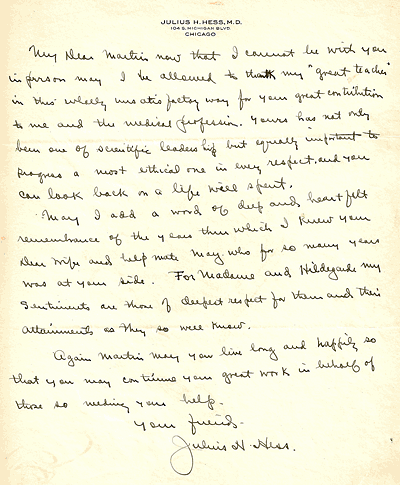 JULIUS H. HESS, M.D.
104 S. MICHIGAN BLVD.
CHICAGO
My Dear Martin now that I cannot be with you
in person may I be allowed to thank my "great teacher"
in this wholly unsatisfactory way for your great contribution
to me and the medical profession. Yours has not only
been one of scientific leadership but equally important to
progress a most ethical one in every respect, and you
can look back on a life well spent.
May I add a word of deep and heart felt
remembrance of the years thru which I knew your
dear wife and help mate May, who for so many years
was at your side. For Madame and Hildegarde my
sentiments are those of deepest respect for them and their
attainments as they so well know.
Again Martin may you live long and happily so
that you may continue your great work in behalf of
those so needing your help.
Your friend.
Julius H. Hess.